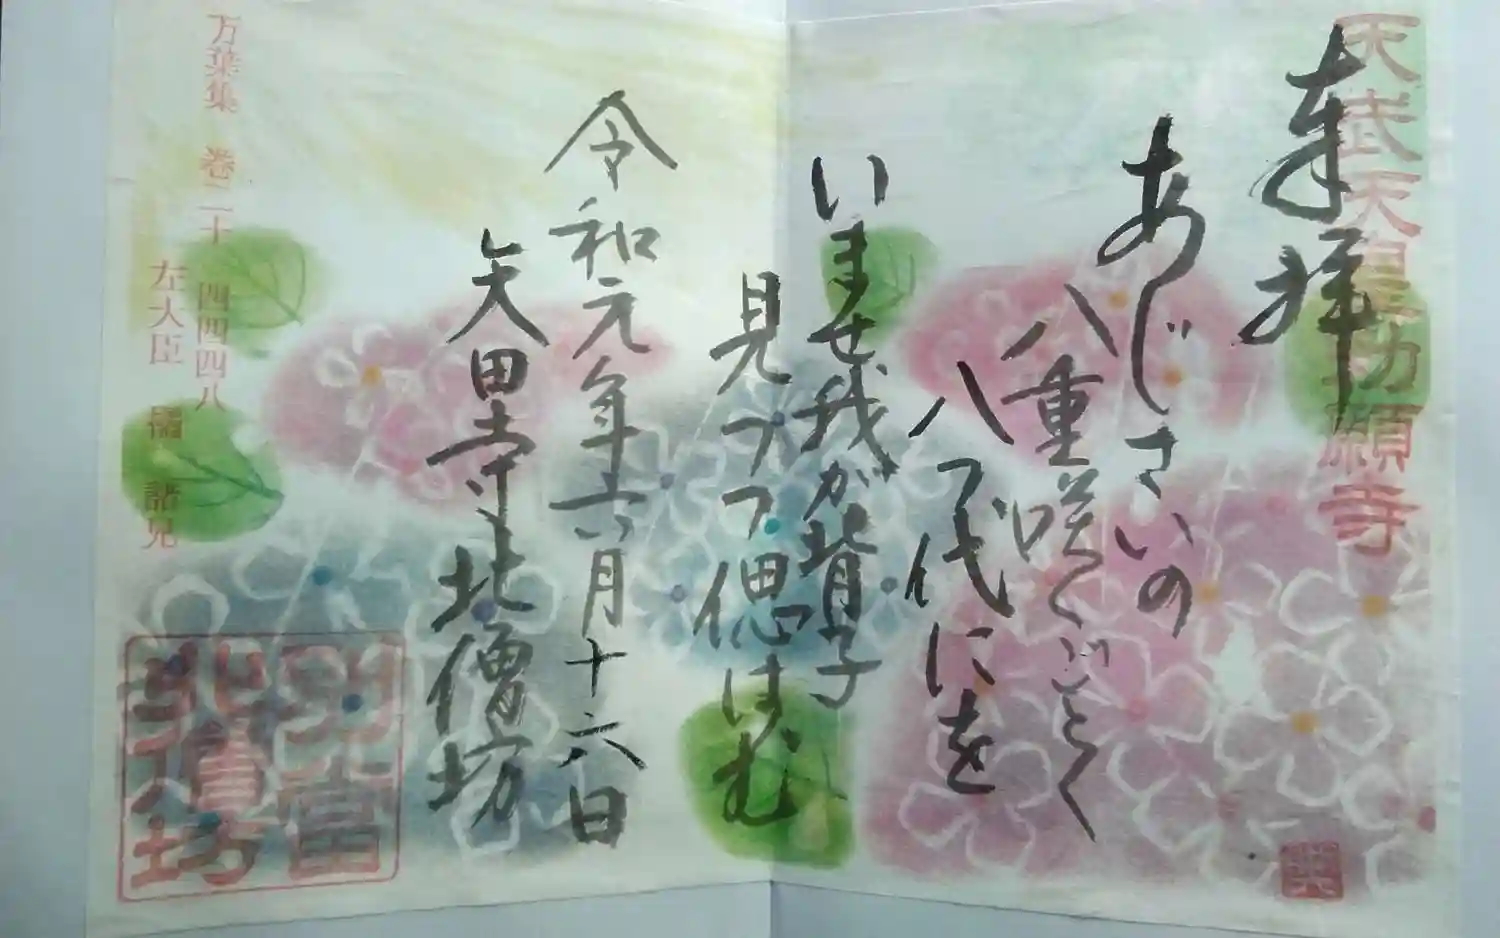 天武天皇勅願寺
奉拝
あじさいの
八重咲くごとく
八つ代にを
いませ我が背子
見つつ偲はむ
令和元年六月十六日
矢田寺北僧坊
万葉集 巻二十 四四四八
左大臣 橘 諸兄
別当
北僧坊